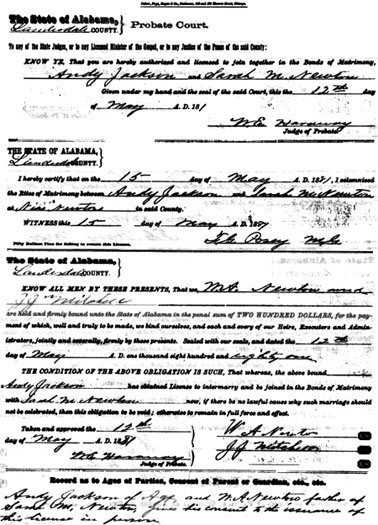 The State of Alabama, } Probate Court.
Lauderdale COUNTY.
To any of the State Judges, or to any Licensed Minister of the Gospel, or to any Justice of the Peace of the said County:
KNOW YE, That you are hereby authorized and licensed to join together in the Bonds of Matrimony,
Andy Jackson and Sarah M. Newton
Given under my hand and the seal of the said Court, this the 12th day
of May A. D. 181
W. C.
Judge of Probate.
THE STATE OF ALABAMA, }
Lauderdale COUNTY.
I hereby certify that on the 15 day of May A. D. 1881, I solemnized
the Rites of Matrimony between Andy Jackson and Sarah M. Newton
at Newton in said County.
WITNESS this 15 day of May A. D. 1881
Fifty Dollars Fine for failing to return this License.
The State of Alabama, }
Lauderdale COUNTY.
KNOW ALL MEN BY THESE PRESENTS, That we, Newton and
J. J. Mitchell
are held and firmly bound unto the State of Alabama in the penal sum of TWO HUNDRED DOLLARS, for the pay-
ment of which, well and truly to be made, we bind ourselves, and each and every of our Heirs, Executors and Admin-
istrators, jointly and severally, firmly by these presents. Sealed with our seals, and dated the 12th
day of May A. D. one thousand eight hundred and eighty one
THE CONDITION OF THE ABOVE OBLIGATION IS SUCH, That whereas, the above bound
Andy Jackson has obtained License to intermarry and be joined in the Bonds of Matrimony
with Sarah M. Newton now, if there be no lawful cause why such marriage should
not be celebrated, then this obligation to be void; otherwise to remain in full force and effect.
Taken and approved the 12th
day of May A. D. 1881
W. C.
Judge of Probate.
W. A. Newton
J. J. Mitchell
Record as to Ages of Parties, Consent of Parent or Guardian, etc., etc.
Andy Jackson of Age, and W. A. Newton father of
Sarah M. Newton, gives his consent to the issuance of
this license in person